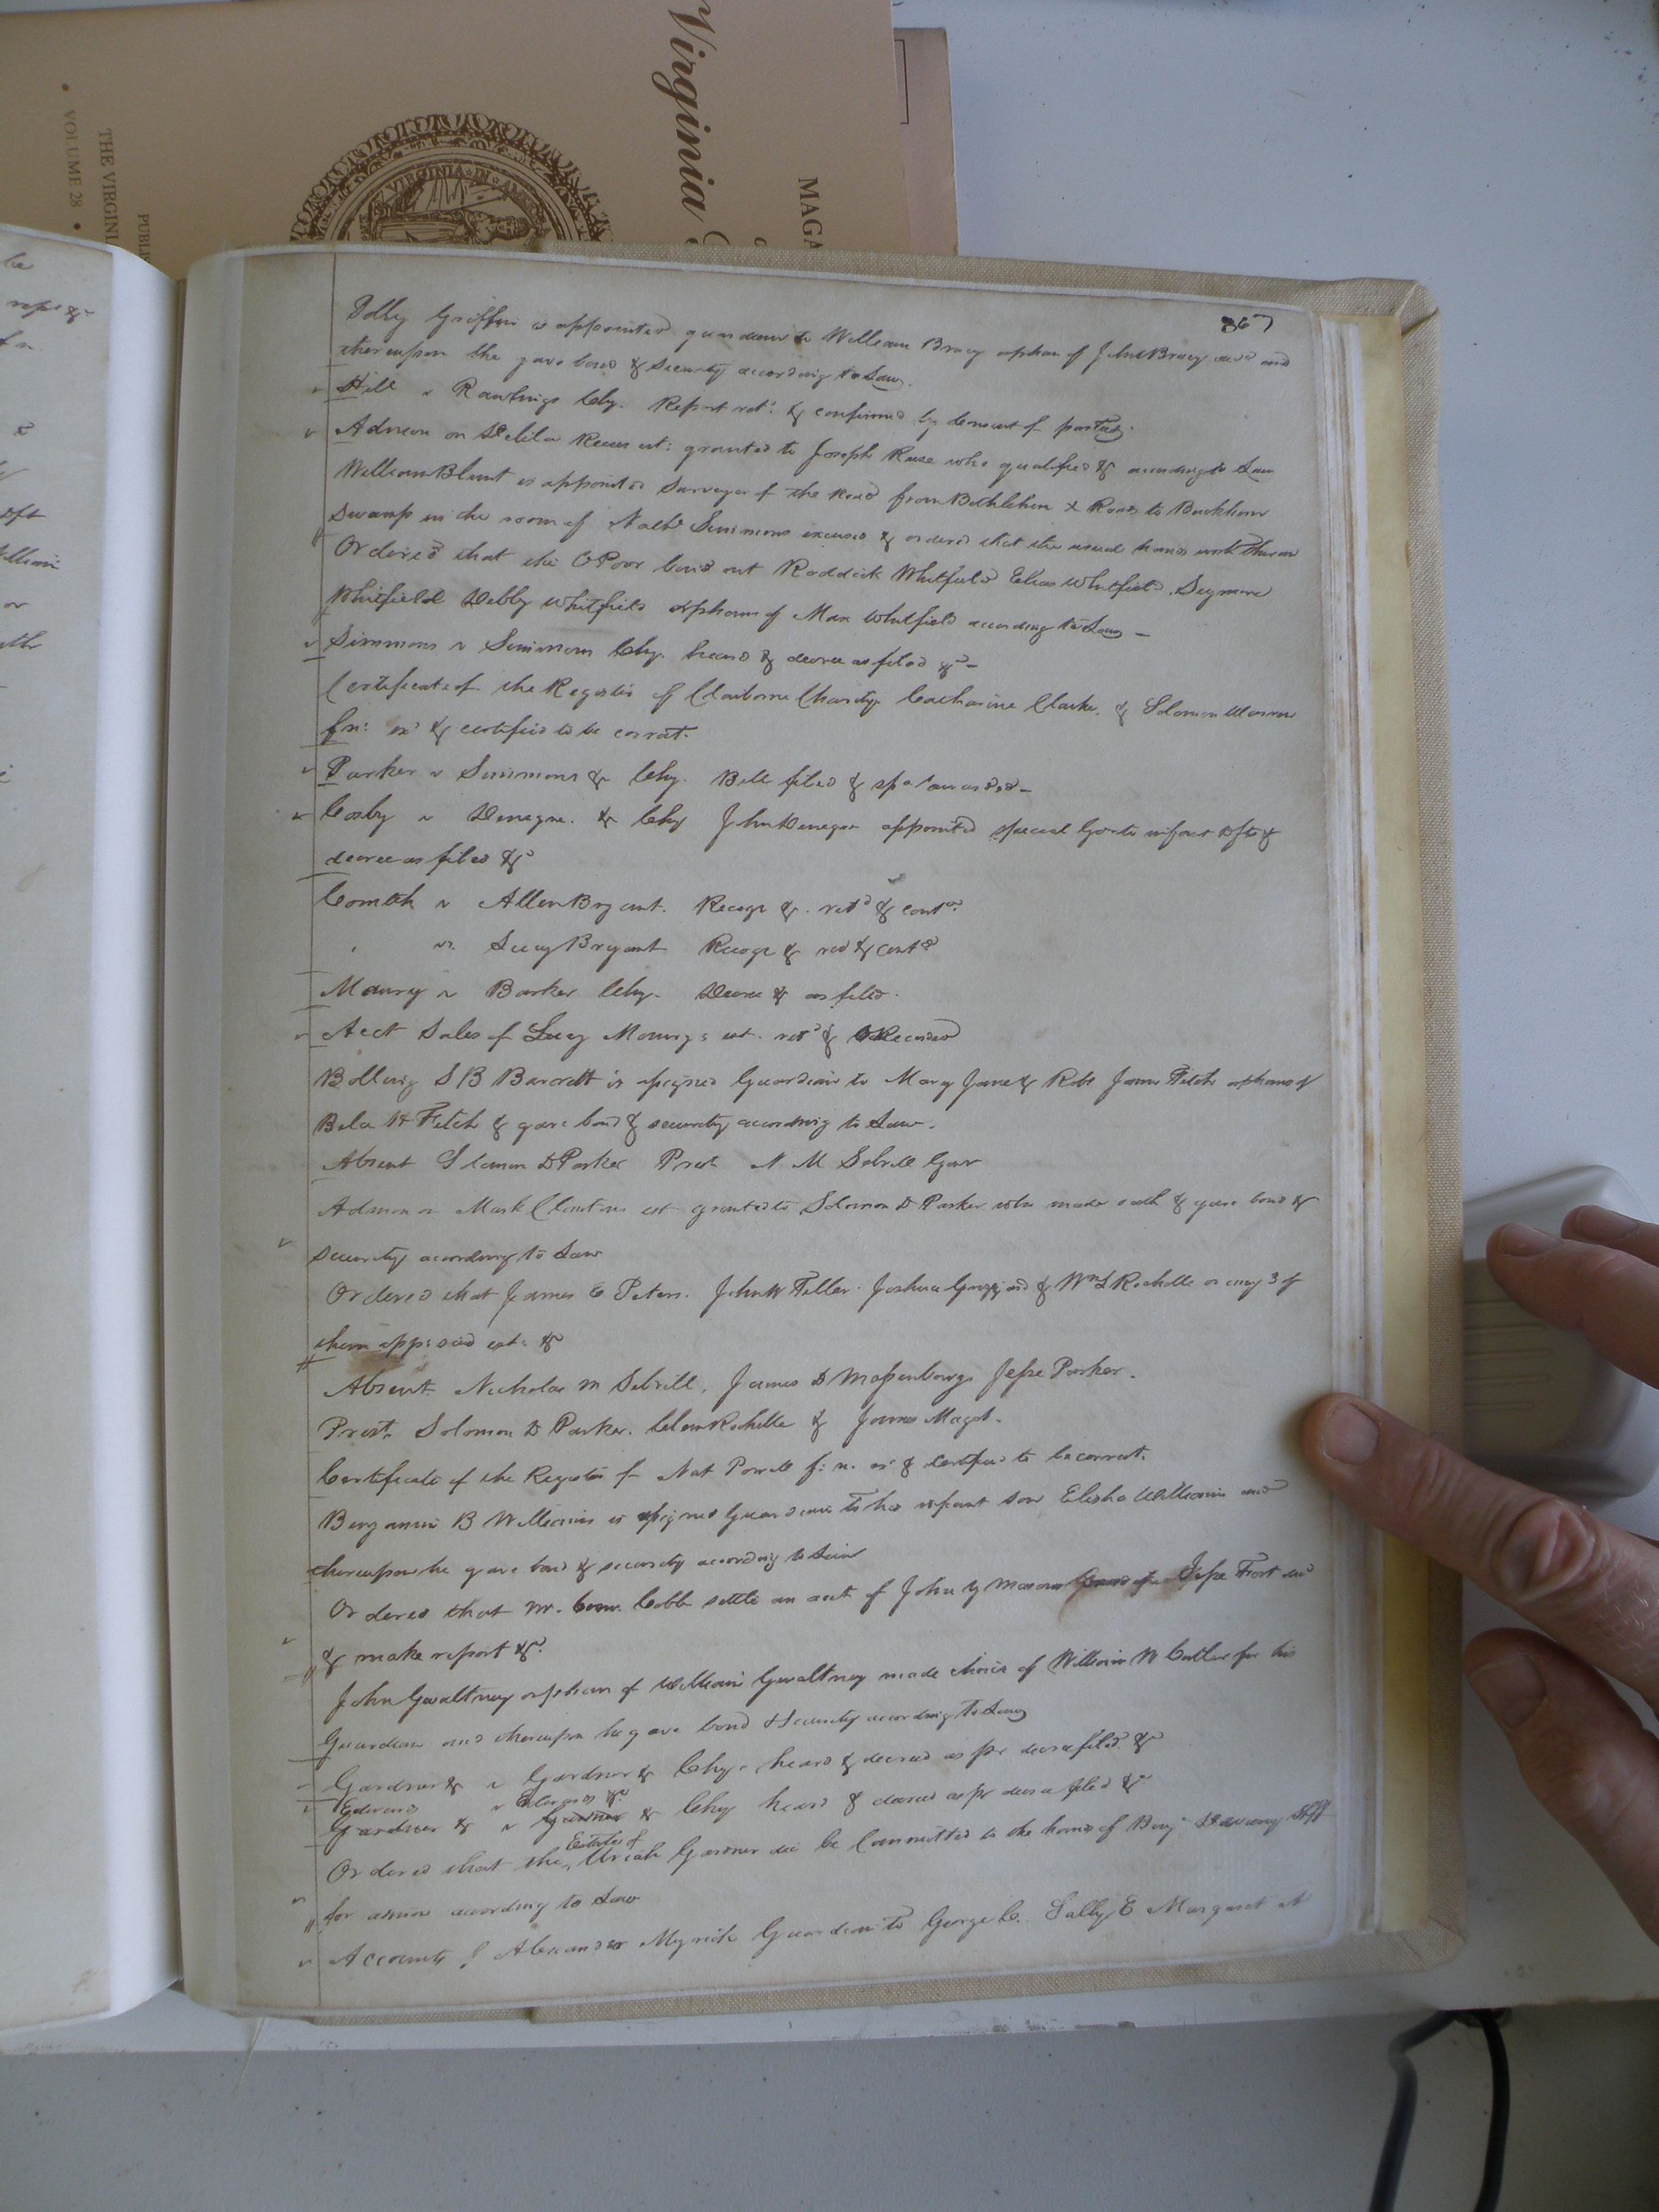 Virginia
MAGA
THE VIRGINI
VOLUME 28
PUBLI
VIRGINIA IN AM
367
Polly Griffin is appointed guardian to William Bracy orphan of John Bracy decd and
thereupon she gave bond & security according to Law.
Hill v Rawlings Chy. Report retd & confirmed by consent of parties.
Admon on Delila Reeses est: granted to Joseph Reese who qualified & according to Law
William Blunt is appointed Surveyor of the Road from Bethlehem X Roads to Buckhorn
Swamp in the room of Simmons excused & ordered that the usual hands work thereon
Ordered that the OPoor bind out Roddick Whitfield Elias Whitfield. Seymore
Whitfield Debby Whitfield orphans of Max Whitfield according to Law
Simmons v Simmons Chy. heard & decree as filed &c
Certificate of the Register of Claiborne Charity. Catharine Clarke. & Solomon
fn: exd & certified to be correct.
Parker v Simmons & Chy. Bill filed & spa awarded
Cosby v & Chy John appointed special Gn to infant Dfts &
decree as filed &c
Comth v Allen Bryant. Recogn &. retd & contd
vs. Lucy Bryant Recogn & retd & contd
Maury v Barker Chy. Decree & as filed.
Acct Sales of Lucy Maurys est. retd & Recorded
Bolling S B Barrett is assigned Guardian to Mary Jane & Robt James Fitch orphans of
Bela H Fitch & gave bond & security according to Law.
Absent Solomon D Parker Prest N M Sebrell Gent
Admon on Mark Clantons est granted to Solomon D Parker who made oath & gave bond &
security according to Law
Ordered that James E Peters. John W Feller. Joshua & Wm L Rochelle or any 3 of
them appraised est: &c
Absent. Nicholas M Sebrell, James D Massenburg Jesse Parker.
Prest. Solomon D Parker. Clem Rochelle & James Maget.
Certificate of the Register of Nat Powell f: n. exd & certified to be correct.
Benjamin B Williams is assigned Guardian to his infant son Elisha Williams and
thereupon he gave bond & security according to Law
Ordered that Mr. Comr. Cobb settle an acct of John Y Mason Jesse Fort decd
& make report &c.
John Gwaltney orphan of William Gwaltney made choice of William W for his
Guardian and thereupon he gave bond & security according to Law
Gardner & v Gardner & Chy. heard & decreed as pr decree filed. &c
Edwards v Edwards &c.
Gardner & v Gardner & Chy heard & decreed as pr decree filed &c
Estate of
Ordered that the Uriah Gardner decd be Committed to the hands of Benj Shff
for admon according to Law
Accounts of Alexander Myrick Guardian to George C. Sally E Margaret A